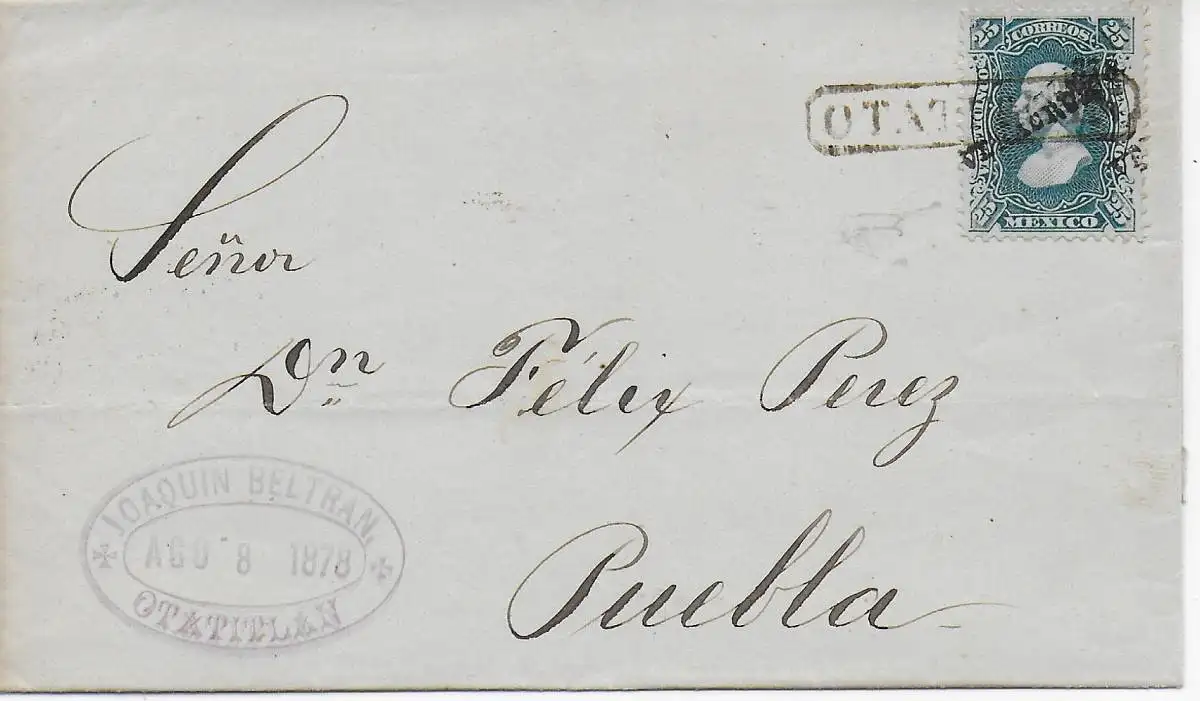 25 CORREOS 25
OTAT
25 MEXICO 25
Señor
Dn Félix Perez
Puebla
JOAQUIN BELTRAN.
AGO 8 1878
OTATITLAN